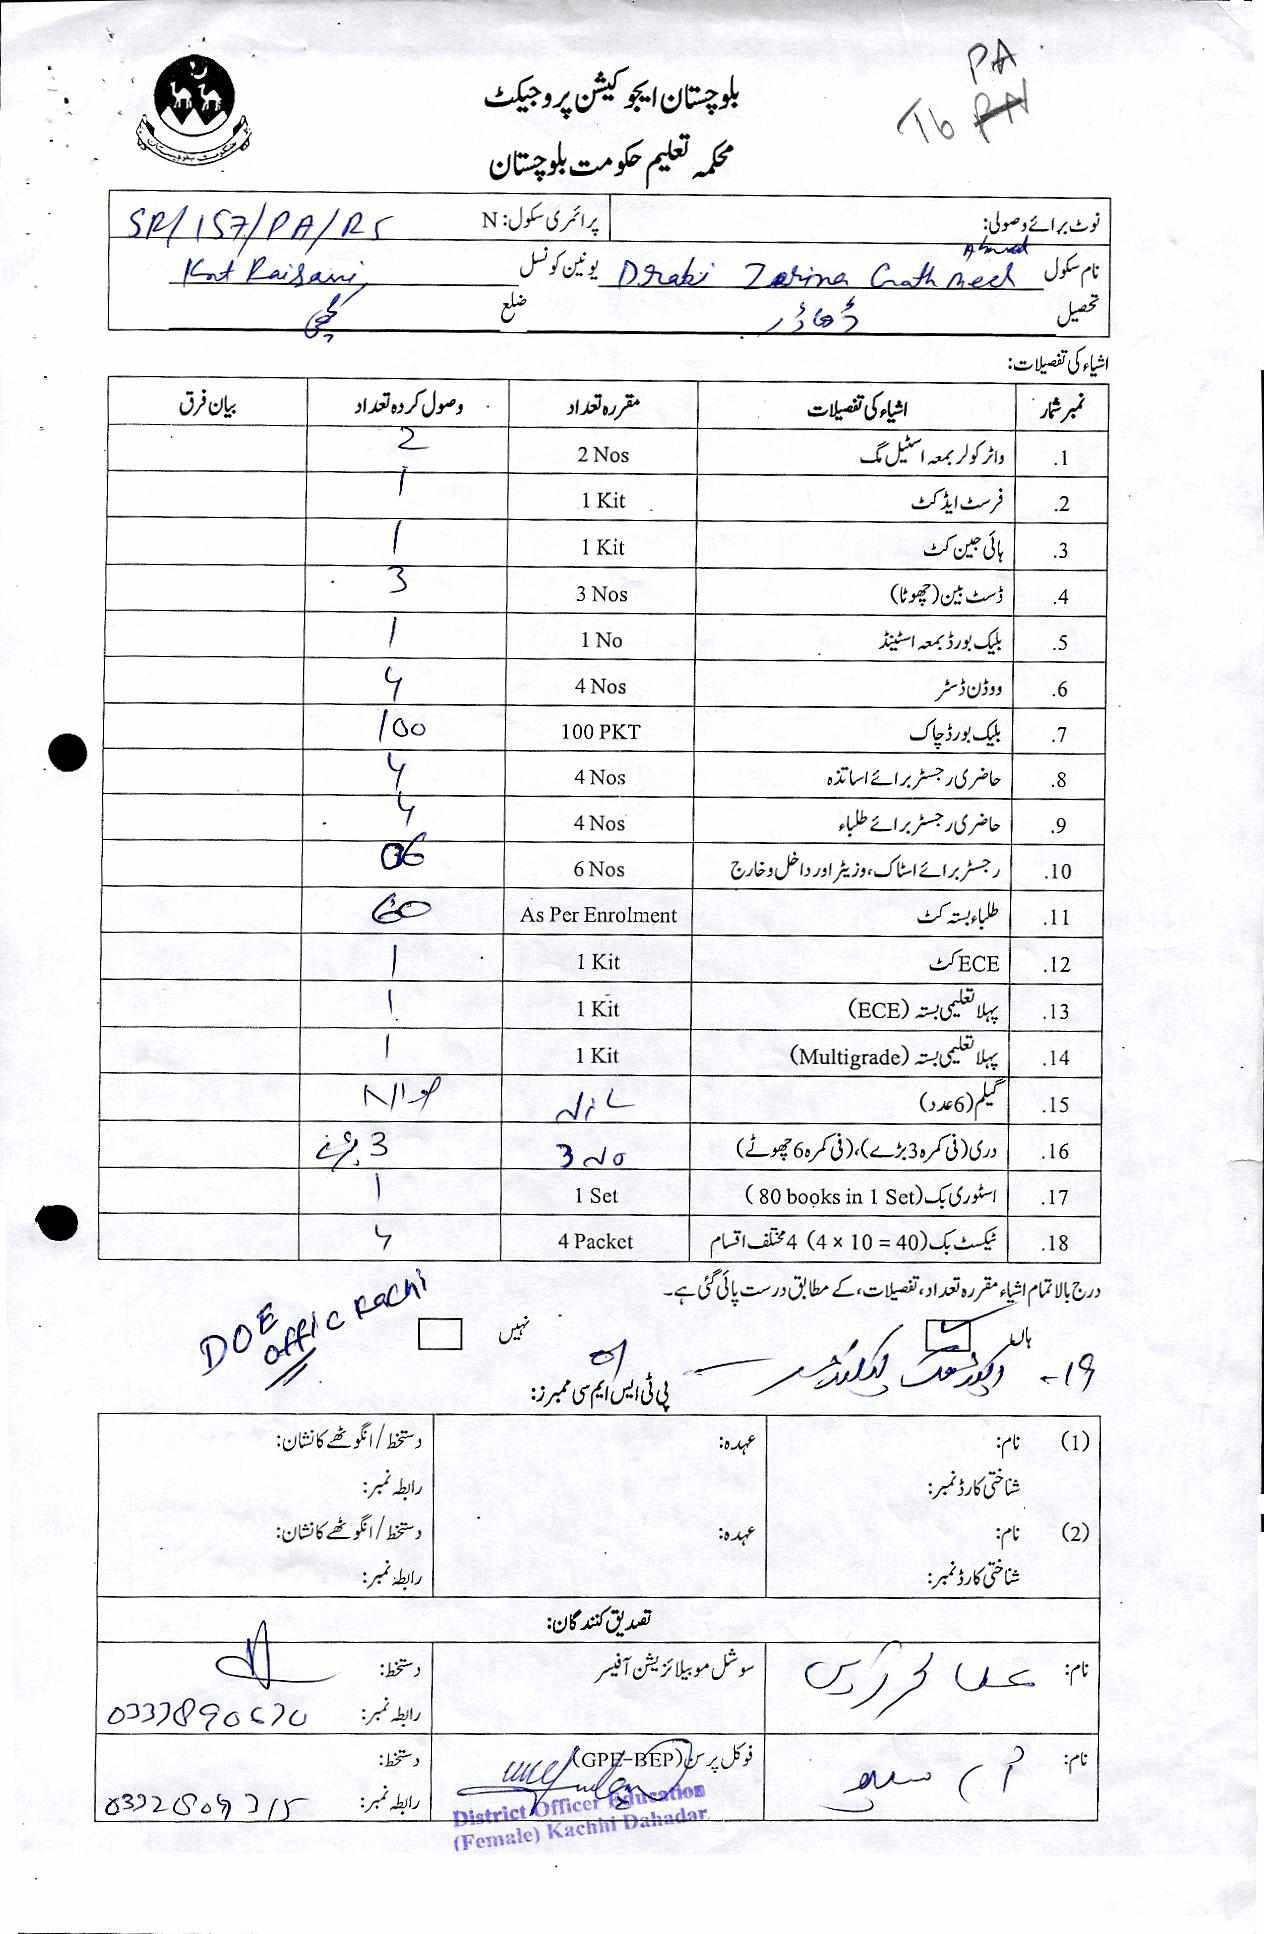 PA
Tb PA
بلوچستان ایجوکیشن پروجیکٹ
محکمہ تعلیم حکومت بلوچستان
نوٹ برائے وصولی: پرائمری سکول: N SR/157/PA/RS
نام سکول Draki Zarina Goth Ahmed یونین کونسل Kot Raisani
تحصیل ڈھاڈر ضلع کچھی
اشیاء کی تفصیلات:
نمبر شمار اشیاء کی تفصیلات مقررہ تعداد وصول کردہ تعداد بیان فرق
1. واٹر کولر بمعہ اسٹیل مگ 2 Nos 2
2. فرسٹ ایڈ کٹ 1 Kit 1
3. ہائی جین کٹ 1 Kit 1
4. ڈسٹ بین (چھوٹا) 3 Nos 3
5. بلیک بورڈ بمعہ اسٹینڈ 1 No 1
6. ووڈن ڈسٹر 4 Nos 4
7. بلیک بورڈ چاک 100 PKT 100
8. حاضری رجسٹر برائے اساتذہ 4 Nos 4
9. حاضری رجسٹر برائے طلباء 4 Nos 4
10. رجسٹر برائے اسٹاک، وزیٹر اور داخل و خارج 6 Nos 06
11. طلباء بستہ کٹ As Per Enrolment 60
12. ECE کٹ 1 Kit 1
13. پہلا تعلیمی بستہ (ECE) 1 Kit 1
14. پہلا تعلیمی بستہ (Multigrade) 1 Kit 1
15. گیلم (6 عدد) Nil
16. دری (فی کمرہ 3 بڑے)، (فی کمرہ 6 چھوٹے) 3 No 3 بڑے
17. اسٹوری بک (80 books in 1 Set) 1 Set 1
18. ٹیکسٹ بک (4 x 10 = 40) 4 مختلف اقسام 4 Packet 4
درج بالا تمام اشیاء مقررہ تعداد، تفصیلات، کے مطابق درست پائی گئی ہے۔
ہاں نہیں
DOE
offic Kachi
19-
پی ٹی ایس ایم سی ممبرز:
(1) نام: عہدہ: دستخط/انگوٹھے کا نشان:
شناختی کارڈ نمبر: رابطہ نمبر:
(2) نام: عہدہ: دستخط/انگوٹھے کا نشان:
شناختی کارڈ نمبر: رابطہ نمبر:
تصدیق کنندگان:
نام: سوشل موبیلائزیشن آفیسر دستخط:
رابطہ نمبر: 0337890670
نام: فوکل پرسن (GPE-BEP) دستخط:
رابطہ نمبر:
District Officer Education
(Female) Kachhi Dahadar